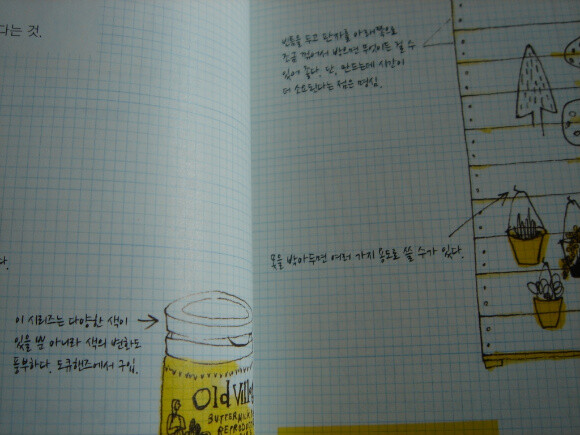 다는 것.
다.
이 시리즈는 다양한 색이
있을 뿐 아니라 색의 변화도
풍부하다. 도큐핸즈에서 구입.
Old Villa
BUTTERMILK
REPRODUCT
빈틈을 두고 판자를 아래쪽으로
조금 꺾어서 박으면 무엇이든 걸 수
있어 좋다. 단, 만드는데 시간이
더 소요된다는 점은 명심.
못을 박아두면 여러 가지 용도로 쓸 수가 있다.